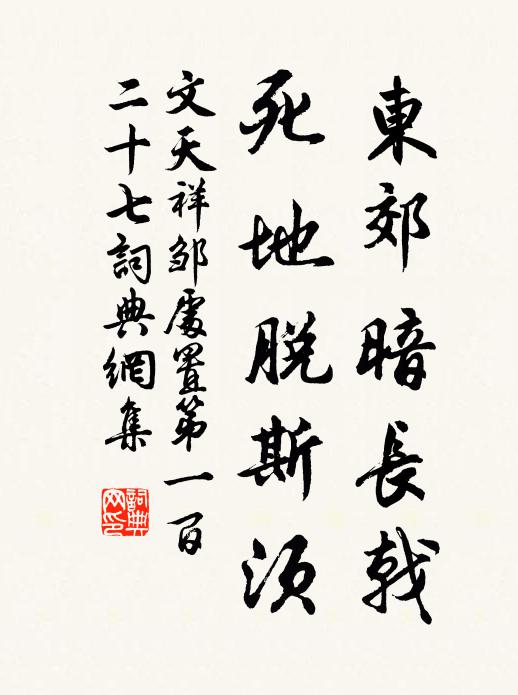 東郊暗長戟
死地脱斯須
文天祥邹處置第一百
二十七詞典網集
詞典
网印